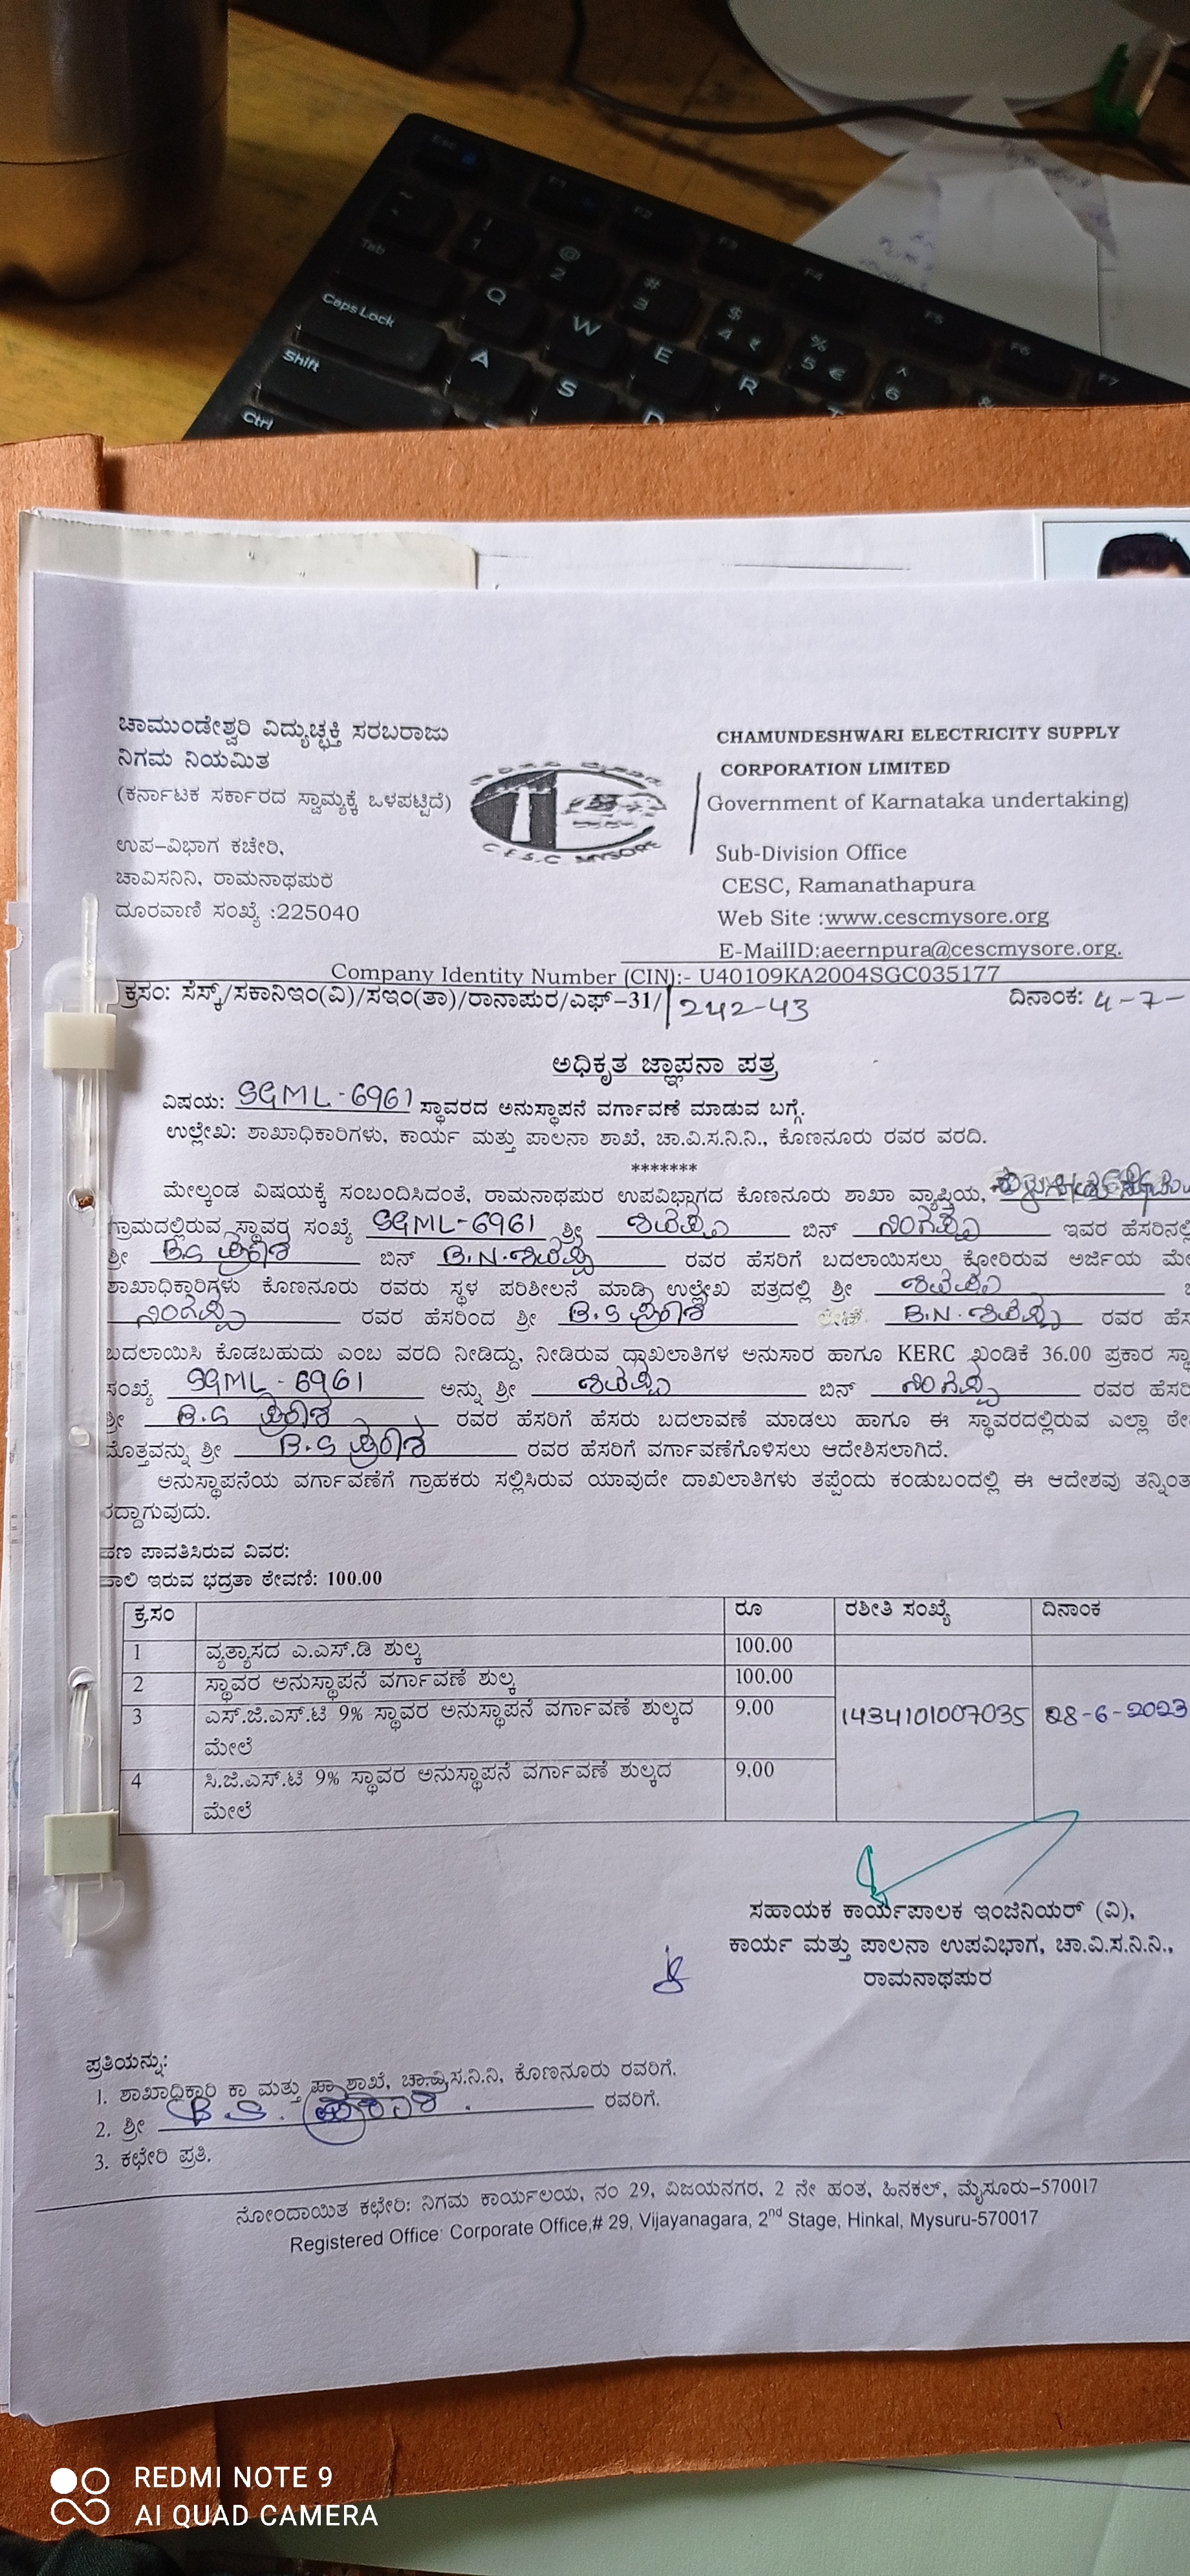 Esc F1 F2 F3 F4 F5 F6 F7
~ ! 1 @ 2 # 3 $ 4 ₹ % 5 € ^ 6 &
Tab Q W E R
Caps Lock A S D
Shift
Ctrl
ಚಾಮುಂಡೇಶ್ವರಿ ವಿದ್ಯುಚ್ಛಕ್ತಿ ಸರಬರಾಜು
ನಿಗಮ ನಿಯಮಿತ
(ಕರ್ನಾಟಕ ಸರ್ಕಾರದ ಸ್ವಾಮ್ಯಕ್ಕೆ ಒಳಪಟ್ಟಿದೆ)
ಉಪ-ವಿಭಾಗ ಕಚೇರಿ,
ಚಾವಿಸನಿನಿ, ರಾಮನಾಥಪುರ
ದೂರವಾಣಿ ಸಂಖ್ಯೆ :225040
C.E.S.C MYSORE
CHAMUNDESHWARI ELECTRICITY SUPPLY
CORPORATION LIMITED
Government of Karnataka undertaking)
Sub-Division Office
CESC, Ramanathapura
Web Site :www.cescmysore.org
E-MailID:aeernpura@cescmysore.org.
Company Identity Number (CIN):- U40109KA2004SGC035177
ಕ್ರಸಂ: ಸೆಸ್ಕ್/ಸಕಾನಿಇಂ(ವಿ)/ಸಇಂ(ತಾ)/ರಾನಾಪುರ/ಎಫ್-31/ 242-43 ದಿನಾಂಕ: 4-7-
ಅಧಿಕೃತ ಜ್ಞಾಪನಾ ಪತ್ರ
ವಿಷಯ: SGML-6961 ಸ್ಥಾವರದ ಅನುಸ್ಥಾಪನೆ ವರ್ಗಾವಣೆ ಮಾಡುವ ಬಗ್ಗೆ.
ಉಲ್ಲೇಖ: ಶಾಖಾಧಿಕಾರಿಗಳು, ಕಾರ್ಯ ಮತ್ತು ಪಾಲನಾ ಶಾಖೆ, ಚಾ.ವಿ.ಸ.ನಿ.ನಿ., ಕೊಣನೂರು ರವರ ವರದಿ.
*******
ಮೇಲ್ಕಂಡ ವಿಷಯಕ್ಕೆ ಸಂಬಂದಿಸಿದಂತೆ, ರಾಮನಾಥಪುರ ಉಪವಿಭಾಗದ ಕೊಣನೂರು ಶಾಖಾ ವ್ಯಾಪ್ತಿಯ,
ಗ್ರಾಮದಲ್ಲಿರುವ ಸ್ಥಾವರ ಸಂಖ್ಯೆ SGML-6961 ಶ್ರೀ ಬಿನ್ ಇವರ ಹೆಸರಿನಲ್ಲಿ
ಶ್ರೀ B.S ಬಿನ್ B.N. ರವರ ಹೆಸರಿಗೆ ಬದಲಾಯಿಸಲು ಕೋರಿರುವ ಅರ್ಜಿಯ ಮೇ
ಶಾಖಾಧಿಕಾರಿಗಳು ಕೊಣನೂರು ರವರು ಸ್ಥಳ ಪರಿಶೀಲನೆ ಮಾಡಿ ಉಲ್ಲೇಖ ಪತ್ರದಲ್ಲಿ ಶ್ರೀ
ರವರ ಹೆಸರಿಂದ ಶ್ರೀ B.S B.N. ರವರ ಹೆಸ
ಬದಲಾಯಿಸಿ ಕೊಡಬಹುದು ಎಂಬ ವರದಿ ನೀಡಿದ್ದು, ನೀಡಿರುವ ದಾಖಲಾತಿಗಳ ಅನುಸಾರ ಹಾಗೂ KERC ಖಂಡಿಕೆ 36.00 ಪ್ರಕಾರ ಸ್ಥಾ
ಸಂಖ್ಯೆ SGML-6961 ಅನ್ನು ಶ್ರೀ ಬಿನ್ ರವರ ಹೆಸರಿ
ಶ್ರೀ B.S ರವರ ಹೆಸರಿಗೆ ಹೆಸರು ಬದಲಾವಣೆ ಮಾಡಲು ಹಾಗೂ ಈ ಸ್ಥಾವರದಲ್ಲಿರುವ ಎಲ್ಲಾ ಠೇ
ಮೊತ್ತವನ್ನು ಶ್ರೀ B.S ರವರ ಹೆಸರಿಗೆ ವರ್ಗಾವಣೆಗೊಳಿಸಲು ಆದೇಶಿಸಲಾಗಿದೆ.
ಅನುಸ್ಥಾಪನೆಯ ವರ್ಗಾವಣೆಗೆ ಗ್ರಾಹಕರು ಸಲ್ಲಿಸಿರುವ ಯಾವುದೇ ದಾಖಲಾತಿಗಳು ತಪ್ಪೆಂದು ಕಂಡುಬಂದಲ್ಲಿ ಈ ಆದೇಶವು ತನ್ನಿಂತ
ರದ್ದಾಗುವುದು.
ಹಣ ಪಾವತಿಸಿರುವ ವಿವರ:
ಹಾಲಿ ಇರುವ ಭದ್ರತಾ ಠೇವಣಿ: 100.00
ಕ್ರ.ಸಂ ರೂ ರಶೀತಿ ಸಂಖ್ಯೆ ದಿನಾಂಕ
1 ವ್ಯತ್ಯಾಸದ ಎ.ಎಸ್.ಡಿ ಶುಲ್ಕ 100.00
2 ಸ್ಥಾವರ ಅನುಸ್ಥಾಪನೆ ವರ್ಗಾವಣೆ ಶುಲ್ಕ 100.00
3 ಎಸ್.ಜಿ.ಎಸ್.ಟಿ 9% ಸ್ಥಾವರ ಅನುಸ್ಥಾಪನೆ ವರ್ಗಾವಣೆ ಶುಲ್ಕದ 9.00 1434101007035 28-6-2023
ಮೇಲೆ
4 ಸಿ.ಜಿ.ಎಸ್.ಟಿ 9% ಸ್ಥಾವರ ಅನುಸ್ಥಾಪನೆ ವರ್ಗಾವಣೆ ಶುಲ್ಕದ 9.00
ಮೇಲೆ
ಸಹಾಯಕ ಕಾರ್ಯಪಾಲಕ ಇಂಜಿನಿಯರ್ (ವಿ),
ಕಾರ್ಯ ಮತ್ತು ಪಾಲನಾ ಉಪವಿಭಾಗ, ಚಾ.ವಿ.ಸ.ನಿ.ನಿ.,
ರಾಮನಾಥಪುರ
ಪ್ರತಿಯನ್ನು:
1. ಶಾಖಾಧಿಕಾರಿ ಕಾ ಮತ್ತು ಪಾ ಶಾಖೆ, ಚಾ.ವಿ.ಸ.ನಿ.ನಿ, ಕೊಣನೂರು ರವರಿಗೆ.
2. ಶ್ರೀ B.S. ರವರಿಗೆ.
3. ಕಛೇರಿ ಪ್ರತಿ.
ನೋಂದಾಯಿತ ಕಛೇರಿ: ನಿಗಮ ಕಾರ್ಯಲಯ, ನಂ 29, ವಿಜಯನಗರ, 2 ನೇ ಹಂತ, ಹಿನಕಲ್, ಮೈಸೂರು-570017
Registered Office: Corporate Office,# 29, Vijayanagara, 2nd Stage, Hinkal, Mysuru-570017
REDMI NOTE 9
AI QUAD CAMERA